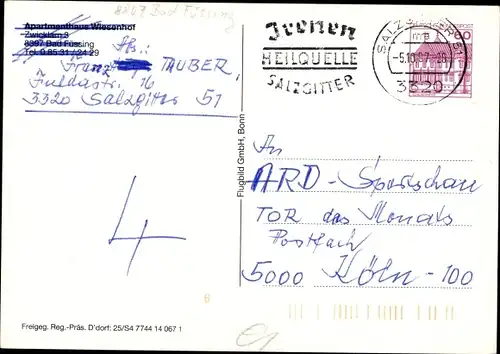 8367 Bad Füssing
Apartmenthaus Wiesenhof
Zwicklarn 3
8397 Bad Füssing
Tel. 0 85 31 / 24 29
Ab.:
Franz TAUBER,
Fuldastr. 16
3320 Salzgitter 51
Irenen
HEILQUELLE
SALZGITTER
SALZGITTER 51
mb
-5.10.87-18
3320
60
Flugbild GmbH, Bonn
An
ARD-Sportschau
TOR des Monats
Postfach
5000 Köln-100
4
8
€1
Freigeg. Reg.-Präs. D'dorf: 25/S4 7744 14 067 1